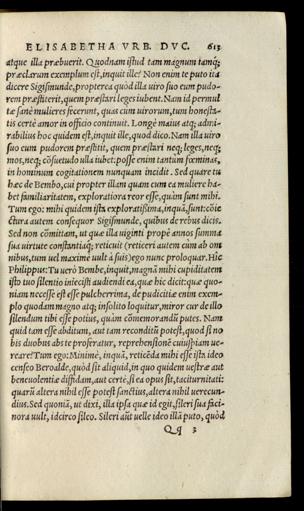 ELISABETHA VRB. DVC. 613
atque illa præbuerit. Quodnam istud tam magnum tamq;
præclarum exemplum est, inquit ille? Non enim te puto ita
dicere Sigismunde, propterea quòd illa uiro suo eum pudo-
rem præstiterit, quem præstari leges iubent. Nam id permul
tæ sanè mulieres fecerunt, quas cum uirorum, tum honesta-
tis certè amor in officio continuit. Longè maius atq; admi-
rabilius hoc quidem est, inquit ille, quod dico. Nam illa uiro
suo eum pudorem præstitit, quem præstari neq; leges, neq;
mos, neq; cõsuetudo ulla iubet: posse enim tantum fœminas,
in hominum cogitationem nunquam incidit. Sed quare tu
hæc de Bembo, cui propter illam quam cum ea muliere ha-
bet familiaritatem, exploratiora reor esse, quàm sunt mihi.
Tum ego: mihi quidem ista exploratissima, inquã, sunt: cõie
ctura autem consequor Sigismunde, quibus de rebus dicis.
Sed non cõmittam, ut quæ illa uiginti propè annos summa
sua uirtute constantiaq; reticuit (reticeri autem cùm ab om
nibus, tum uel maxime uult à suis) ego nunc proloquar. Hic
Philippus: Tu uerò Bembe, inquit, magnã mihi cupiditatem
isto tuo silentio iniecisti audiendi ea, quæ hic dicit: quæ quo-
niam necesse est esse pulcherrima, de pudicitiæ enim exem-
plo quodam magno atq; insolito loquitur, miror cur de illo
silendum tibi esse potius, quàm cõmemorandũ putes. Nam
quid tam esse abditum, aut tam reconditũ potest, quod si no
bis duobus abs te proferatur, reprehensionẽ cuiuspiam ue-
reare? Tum ego: Minimè, inquã, reticẽda mihi esse ista ideo
censeo Beroalde, quòd sit aliquid, in quo quidem uestræ aut
beneuolentiæ diffidam, aut certè, si ea opus sit, taciturnitati:
quarũ altera nihil esse potest sanctius, altera nihil uerecun-
dius. Sed quoniã, ut dixi, illa ipsa quæ id egit, sileri sua faci-
nora uult, idcirco sileo. Sileri aũt uelle ideo illã puto, quòd
Qq 3